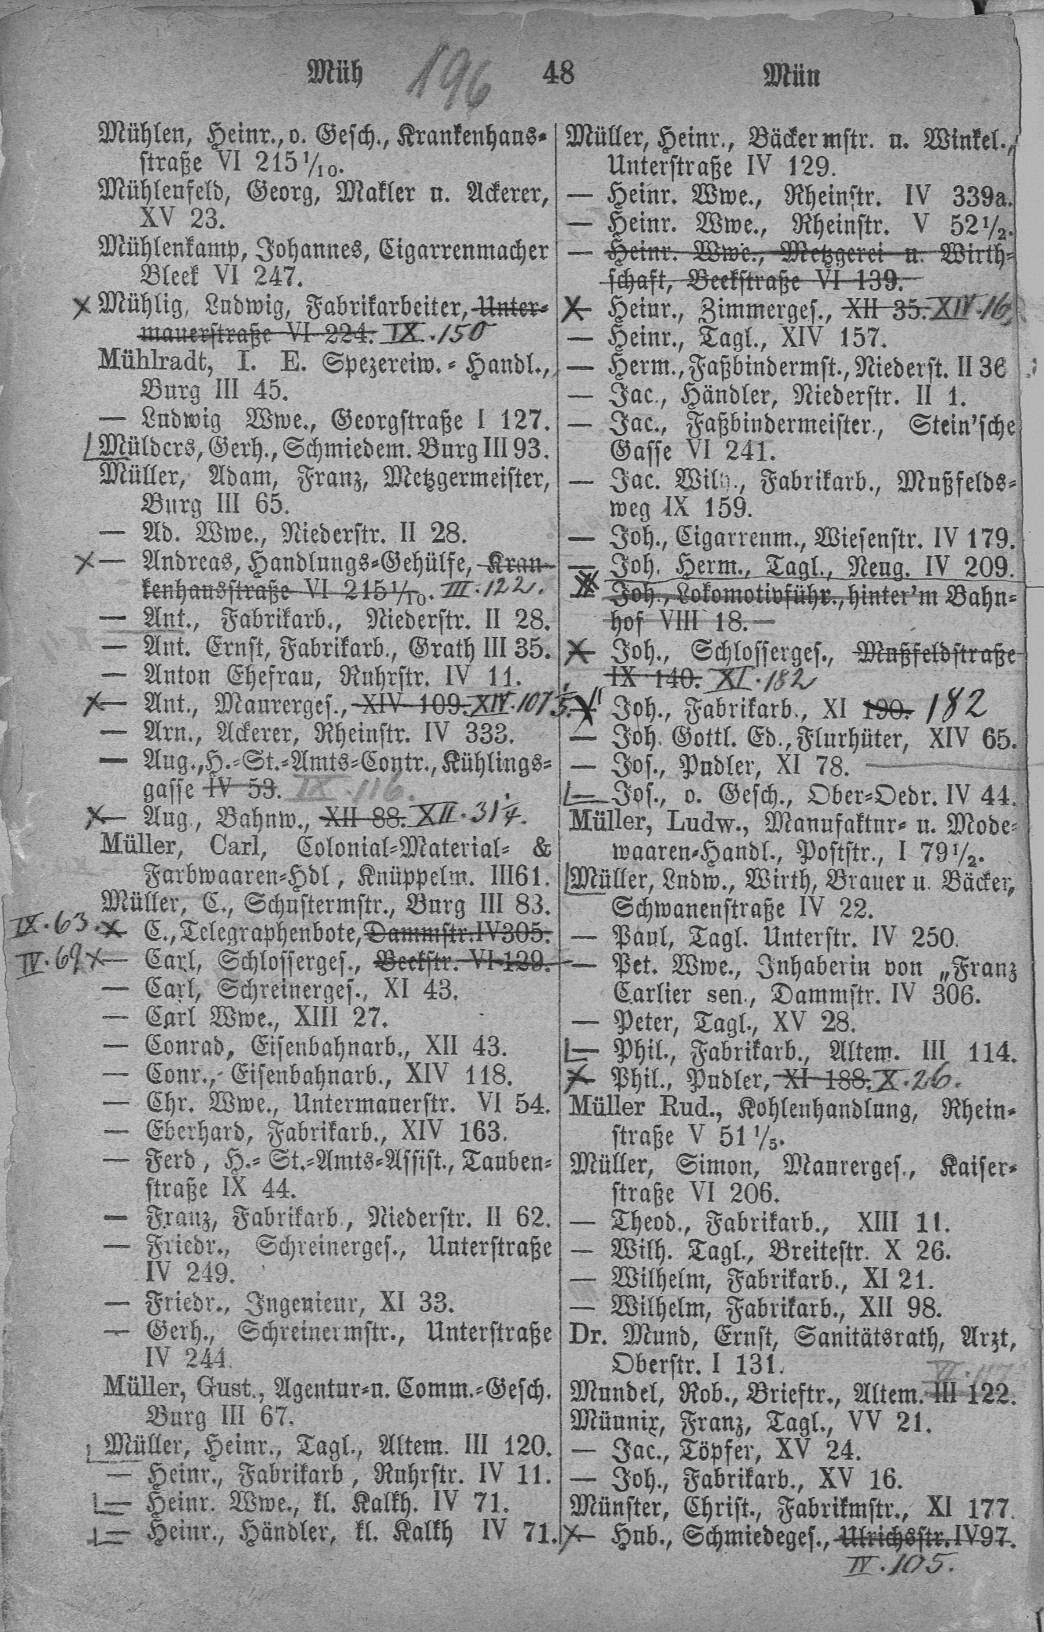 Müh 196 48 Mün
Mühlen, Heinr., o. Gesch., Krankenhaus-
straße VI 215 1/10.
Mühlenfeld, Georg, Makler u. Ackerer,
XV 23.
Mühlenkamp, Johannes, Cigarrenmacher
Bleek VI 247.
× Mühlig, Ludwig, Fabrikarbeiter, Unter-
mauerstraße VI 224. IX. 150
Mühlradt, I. E. Spezereiw.-Handl.,
Burg III 45.
— Ludwig Wwe., Georgstraße I 127.
Mülders, Gerh., Schmiedem. Burg III 93.
Müller, Adam, Franz, Metzgermeister,
Burg III 65.
— Ad. Wwe., Niederstr. II 28.
×— Andreas, Handlungs-Gehülfe, Kran-
kenhausstraße VI 215 1/10. III. 122.
— Ant., Fabrikarb., Niederstr. II 28.
— Ant. Ernst, Fabrikarb., Grath III 35.
— Anton Ehefrau, Ruhrstr. IV 11.
×— Ant., Maurerges., XIV 109. XIV. 107
— Arn., Ackerer, Rheinstr. IV 333.
— Aug., H.-St.-Amts-Contr., Kühlings-
gasse IV 53. IX. 116.
×— Aug., Bahnw., XII 88. XII. 31 1/4.
Müller, Carl, Colonial-Material- &
Farbwaaren-Hdl, Knüppelm. III 61.
Müller, C., Schustermstr., Burg III 83.
IX. 63. × C., Telegraphenbote, Dammstr. IV 305.
IV. 69 ×— Carl, Schlosserges., Beekstr. VI 129.
— Carl, Schreinerges., XI 43.
— Carl Wwe., XIII 27.
— Conrad, Eisenbahnarb., XII 43.
— Conr., Eisenbahnarb., XIV 118.
— Chr. Wwe., Untermauerstr. VI 54.
— Eberhard, Fabrikarb., XIV 163.
— Ferd, H.-St.-Amts-Assist., Tauben-
straße IX 44.
— Franz, Fabrikarb., Niederstr. II 62.
— Friedr., Schreinerges., Unterstraße
IV 249.
— Friedr., Ingenieur, XI 33.
— Gerh., Schreinermstr., Unterstraße
IV 244
Müller, Gust., Agentur- u. Comm.-Gesch.
Burg III 67.
Müller, Heinr., Tagl., Altem. III 120.
— Heinr., Fabrikarb, Ruhrstr. IV 11.
— Heinr. Wwe., kl. Kalkh. IV 71.
— Heinr., Händler, kl. Kalkh IV 71.
Müller, Heinr., Bäckermstr. u. Winkel.,
Unterstraße IV 129.
— Heinr. Wwe., Rheinstr. IV 339a.
— Heinr. Wwe., Rheinstr. V 52 1/2.
— Heinr. Wwe., Metzgerei u. Wirth-
schaft, Beekstraße VI 139.
×— Heinr., Zimmerges., XII 35. XIV. 16,
— Heinr., Tagl., XIV 157.
— Herm., Faßbindermst., Niederst. II 36
— Jac., Händler, Niederstr. II 1.
— Jac., Faßbindermeister., Stein'sche
Gasse VI 241.
— Jac. Wilh., Fabrikarb., Mußfelds-
weg IX 159.
— Joh., Cigarrenm., Wiesenstr. IV 179.
— Joh. Herm., Tagl., Neug. IV 209.
× Joh., Lokomotivführ., hinter'm Bahn-
hof VIII 18.
×— Joh., Schlosserges., Mußfeldstraße
IX 140. XI. 182
× Joh., Fabrikarb., XI 190. 182
— Joh. Gottl. Ed., Flurhüter, XIV 65.
— Jos., Pudler, XI 78.
— Jos., o. Gesch., Ober-Oedr. IV 44.
Müller, Ludw., Manufaktur- u. Mode-
waaren-Handl., Poststr., I 79 1/2.
Müller, Ludw., Wirth, Brauer u. Bäcker,
Schwanenstraße IV 22.
— Paul, Tagl. Unterstr. IV 250.
— Pet. Wwe., Inhaberin von „Franz
Carlier sen., Dammstr. IV 306.
— Peter, Tagl., XV 28.
— Phil., Fabrikarb., Altem. III 114.
×— Phil., Pudler, XI 188. X. 26.
Müller Rud., Kohlenhandlung, Rhein-
straße V 51 1/5.
Müller, Simon, Maurerges., Kaiser-
straße VI 206.
— Theod., Fabrikarb., XIII 11.
— Wilh. Tagl., Breitestr. X 26.
— Wilhelm, Fabrikarb., XI 21.
— Wilhelm, Fabrikarb., XII 98.
Dr. Mund, Ernst, Sanitätsrath, Arzt,
Oberstr. I 131.
Mundel, Rob., Brieftr., Altem. III 122.
Münnix, Franz, Tagl., VV 21.
— Jac., Töpfer, XV 24.
— Joh., Fabrikarb., XV 16.
Münster, Christ., Fabrikmstr., XI 177
×— Hub., Schmiedeges., Ulrichsstr. IV 97.
IV. 105.